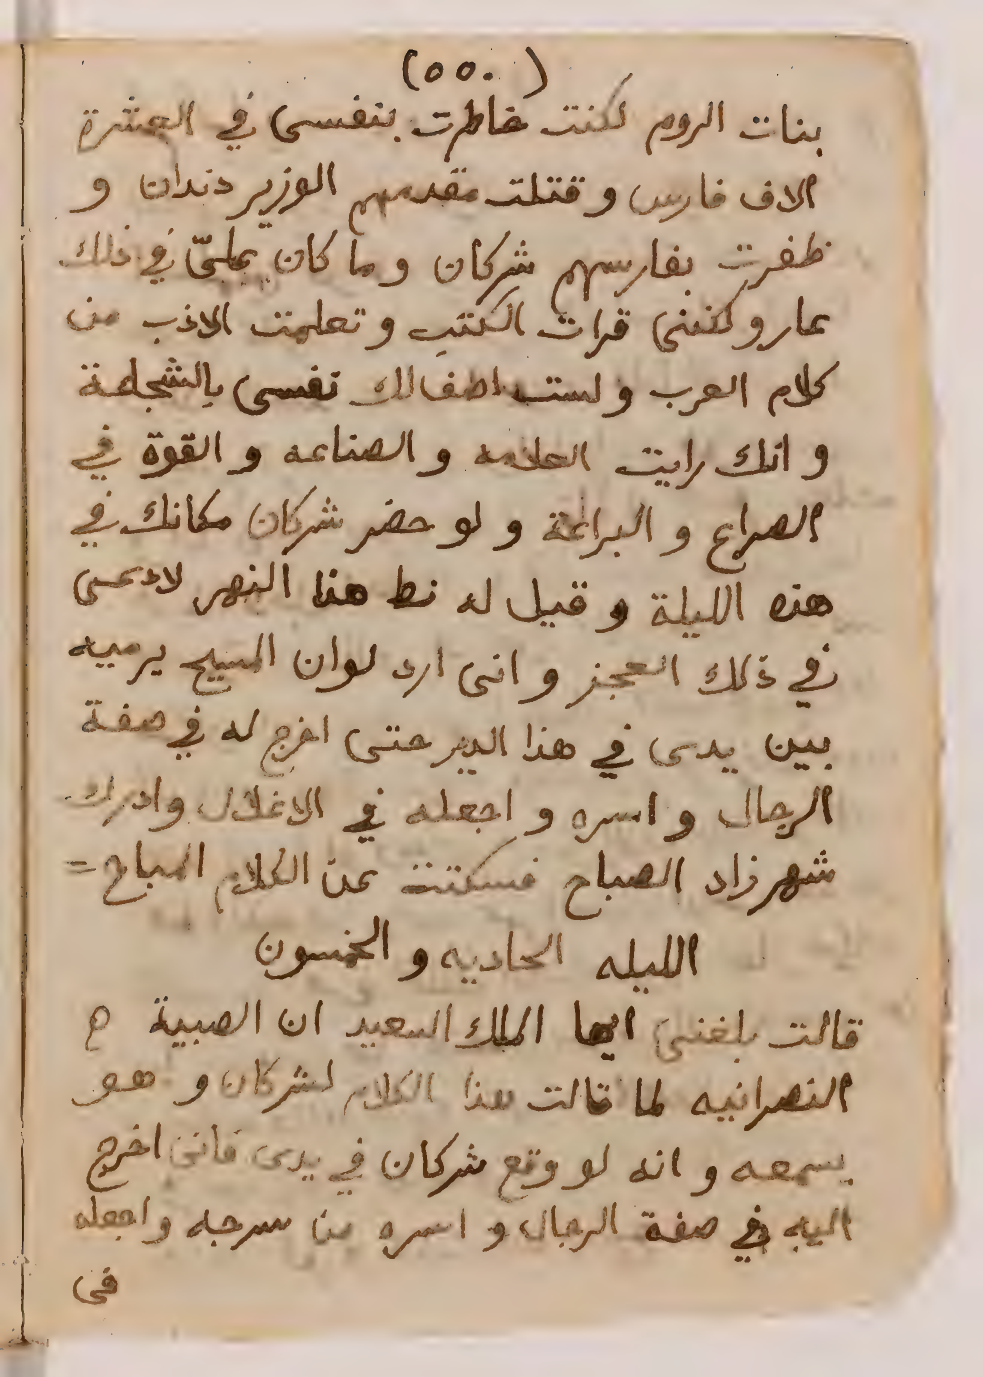 (٥٥٠)
بنات الروم لكنت خاطرت بنفسى في العشرة
الاف فارس و قتلت مقدمهم الوزير دندان و
ظفرت بفارسهم شركان و ما كان علىّ في ذلك
عار ولكننى قرات الكتب و تعلمت الادب من
كلام العرب و لست اصف لك نفسى بالشجاعة
و انك رايت العلامه و الصناعه و القوة في
الصراع و البراعة و لو حضر شركان مكانك في
هذه الليلة و قيل له نط هذا النهر لادعى
في ذلك العجز و انى ارد لو ان المسيح يرميه
بين يدى في هذا الدير حتى اخرج له في صفة
الرجال و اسره و اجعله في الاغلال و ادرك
شهرزاد الصباح فسكتت عن الكلام المباح =
الليله الحاديه و الخمسون
قالت بلغنى ايها الملك السعيد ان الصبية
النصرانيه لما قالت هذا الكلام لشركان و هو
يسمعه و انه لو وقع شركان في يدى فانى اخرج
اليه في صفة الرجال و اسره من سرجه و اجعله
فى